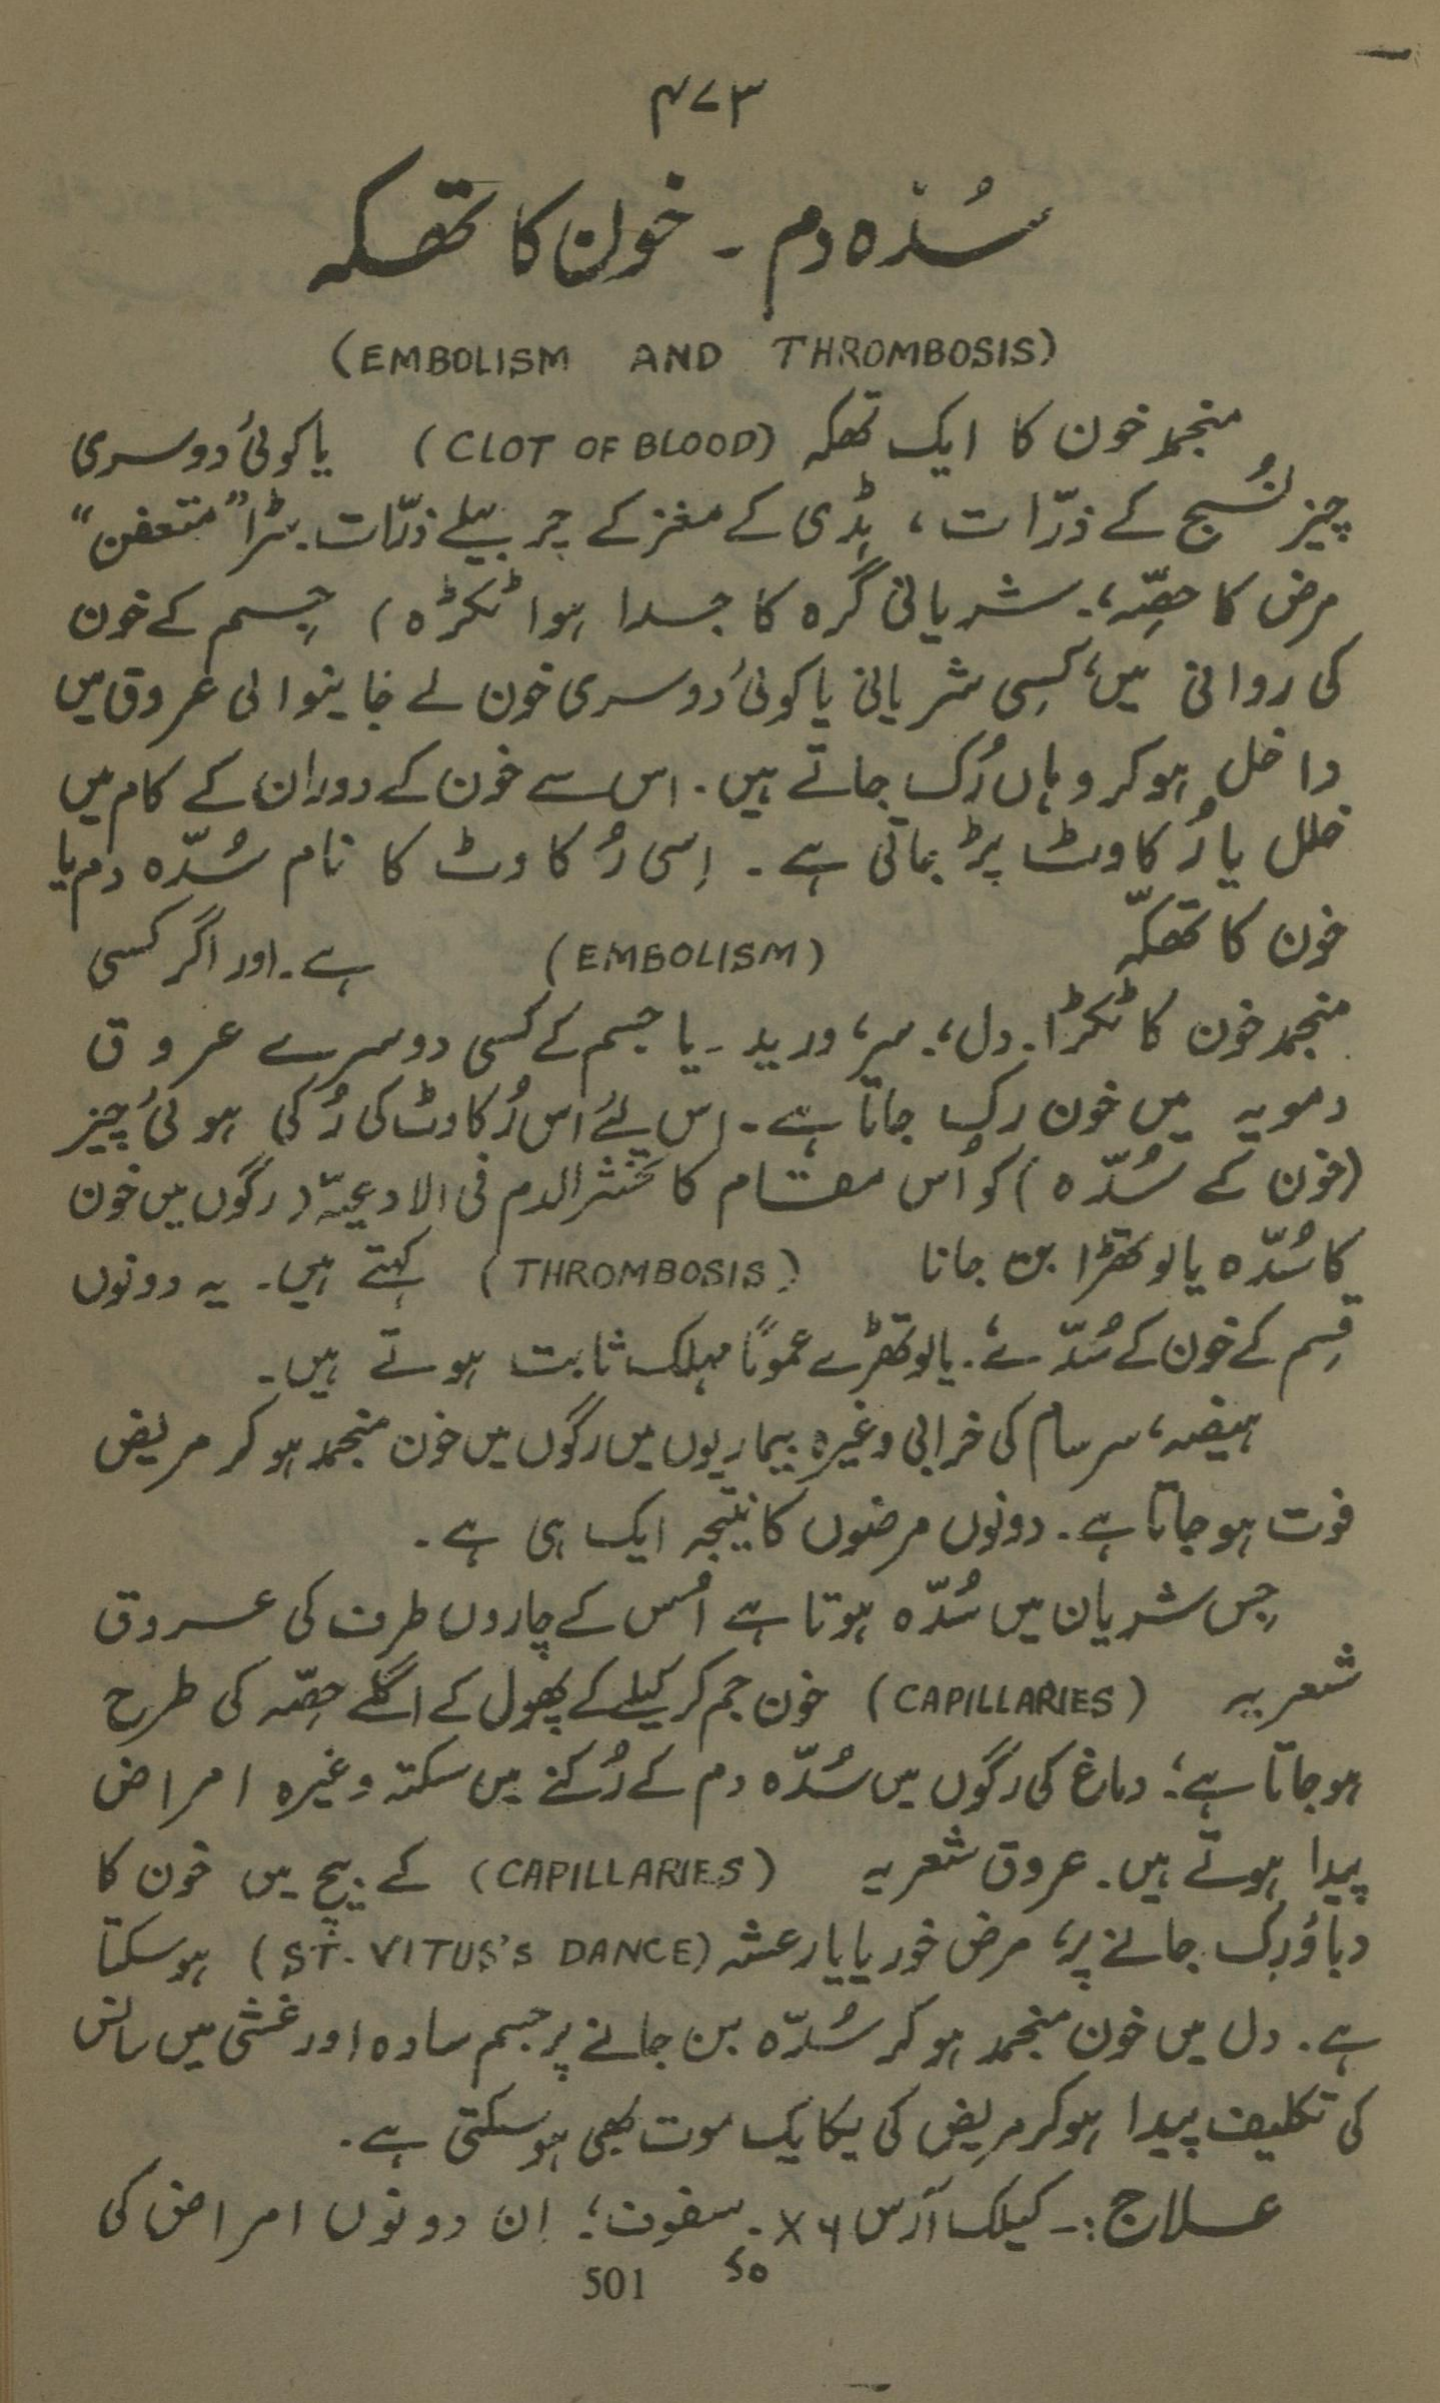 ۴۷۳
سُدّہ دم ۔ خون کا تھکہ
(EMBOLISM AND THROMBOSIS)
منجمد خون کا ایک تھکہ (CLOT OF BLOOD) یا کوئی دوسری
چیز نُسج کے ذرّات ، ہڈی کے مغز کے چربیلے ذرّات۔ سڑا "متعفن"
مرض کا حصّہ،۔ شریانی گرہ کا جدا ہوا ٹکڑہ) جِسم کے خون
کی روانی میں، کسِی شریانی یا کوئی دوسری خون لے جانیوالی عروق میں
داخل ہوکر وہاں رُک جاتے ہیں۔ اس سے خون کے دوران کے کام میں
خلل یا رُکاوٹ پڑ جاتی ہے ۔ اِسی رُکاوٹ کا نام سُدّہ دم یا
خون کا تھکّہ (EMBOLISM) ہے۔ اور اگر کسی
منجمد خون کا ٹکڑا۔ دل،۔ سر، ورید ۔ یا جسم کے کسی دوسرے عروق
دمویہ میں خون رک جاتا ہے۔ اس لئے اُس رُکاوٹ کی رُکی ہوئی چیز
(خون کے سُدّہ) کو اُس مقام کا تخثر الدم فی الادعیتہ (رگوں میں خون
کا سُدّہ یا لوتھڑا بن جانا (THROMBOSIS) کہتے ہیں۔ یہ دونوں
قِسم کے خون کے سُدّے،۔ یا لوتھڑے عموماً مہلک ثابت ہوتے ہیں۔
ہیضہ، سرسام کی خرابی وغیرہ بیماریوں میں رگوں میں خون منجمد ہو کر مریض
فوت ہو جاتا ہے۔ دونوں مرضوں کا نتیجہ ایک ہی ہے ۔
جِس شریان میں سُدّہ ہوتا ہے اُس کے چاروں طرف کی عروق
شعریہ (CAPILLARIES) خون جم کر کیلے کے پھول کے اگلے حِصّہ کی طرح
ہو جاتا ہے؛ دماغ کی رگوں میں سُدّہ دم کے رُکنے میں سکتہ وغیرہ امراض
پیدا ہوتے ہیں۔ عروق شعریہ (CAPILLARIES) کے بیچ میں خون کا
دباؤ رُک جانے پر، مرض خوریا یا رعشہ (ST. VITUS'S DANCE) ہو سکتا
ہے ۔ دل میں خون منجمد ہو کر سُدّہ بن جانے پر جسم سادہ اور غشی میں سانس
کی تکلیف پیدا ہو کر مریض کی یکایک موت بھی ہو سکتی ہے ۔
علاج :۔ کیلک آرس ۶x ۔ سفوف؛ اِن دونوں امراض کی
501